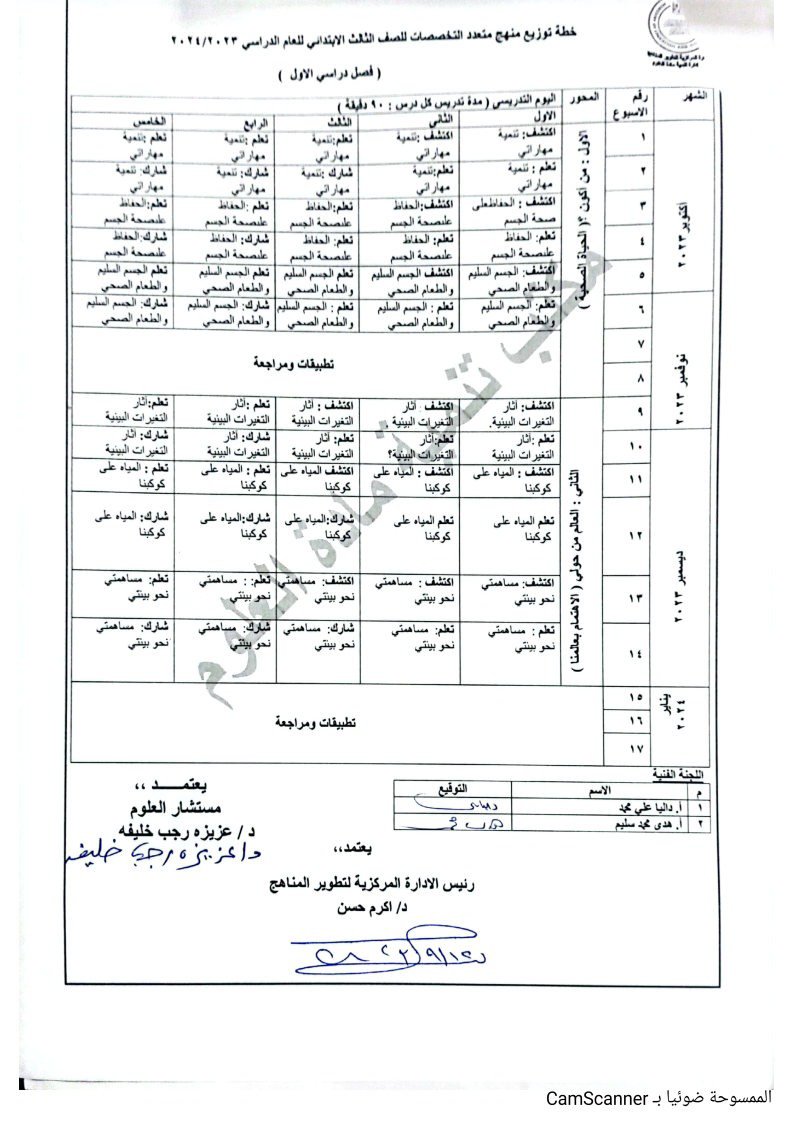 خطة توزيع منهج متعدد التخصصات للصف الثالث الابتدائي للعام الدراسي ٢٠٢٤/٢٠٢٣
( فصل دراسي الاول )
الشهر
رقم الاسبوع
المحور
اليوم التدريسي ( مدة تدريس كل درس : ٩٠ دقيقة )
الاول الثاني الثالث الرابع الخامس
أكتوبر ٢٠٢٣
الاول : من أكون ؟ ( الحياة الصحية )
١ اكتشف: تنمية اكتشف :تنمية تعلم:تنمية تعلم :تنمية تعلم:تنمية
مهاراتي مهاراتي مهاراتي مهاراتي مهاراتي
٢ تعلم : تنمية تعلم:تنمية شارك: تنمية شارك: تنمية شارك: تنمية
مهاراتي مهاراتي مهاراتي مهاراتي مهاراتي
٣ اكتشف : الحفاظعلى اكتشف:الحفاظ تعلم:الحفاظ تعلم :الحفاظ تعلم:الحفاظ
صحة الجسم علىصحة الجسم علىصحة الجسم علىصحة الجسم علىصحة الجسم
٤ تعلم: الحفاظ تعلم: الحفاظ تعلم: الحفاظ شارك: الحفاظ شارك: الحفاظ
علىصحة الجسم علىصحة الجسم علىصحة الجسم علىصحة الجسم علىصحة الجسم
٥ اكتشف: الجسم السليم اكتشف الجسم السليم تعلم الجسم السليم تعلم الجسم السليم تعلم الجسم السليم
والطعام الصحي والطعام الصحي والطعام الصحي والطعام الصحي والطعام الصحي
نوفمبر ٢٠٢٣
٦ تعلم: الجسم السليم تعلم : الجسم السليم تعلم : الجسم السليم شارك: الجسم السليم شارك: الجسم السليم
والطعام الصحي والطعام الصحي والطعام الصحي والطعام الصحي والطعام الصحي
٧
تطبيقات ومراجعة
٨
الثاني : العالم من حولي ( الاهتمام بعالمنا )
٩ اكتشف: آثار اكتشف: آثار اكتشف : آثار تعلم: آثار تعلم:آثار
التغيرات البيئية. التغيرات البيئية التغيرات البيئية التغيرات البيئية التغيرات البيئية
ديسمبر ٢٠٢٣
١٠ تعلم :آثار تعلم:آثار تعلم: آثار شارك: آثار شارك: آثار
التغيرات البيئية التغيرات البيئية؟ التغيرات البيئية التغيرات البيئية التغيرات البيئية
١١ اكتشف : المياه على اكتشف : المياه على اكتشف المياه على تعلم : المياه على تعلم : المياه على
كوكبنا كوكبنا كوكبنا كوكبنا كوكبنا
١٢ تعلم المياه على تعلم المياه على شارك:المياه على شارك:المياه على شارك: المياه على
كوكبنا كوكبنا كوكبنا كوكبنا كوكبنا
١٣ اكتشف: مساهمتي اكتشف : مساهمتي اكتشف: مساهمتي تعلم: : مساهمتي تعلم: مساهمتي
نحو بيئتي نحو بيئتي نحو بيئتي نحو بيئتي نحو بيئتي
١٤ تعلم : مساهمتي تعلم: مساهمتي شارك: مساهمتي شارك: مساهمتي شارك: مساهمتي
نحو بيئتي نحو بيئتي نحو بيئتي نحو بيئتي نحو بيئتي
يناير ٢٠٢٤
١٥
١٦ تطبيقات ومراجعة
١٧
مكتب تنمية مادة العلوم
اللجنة الفنية
م الاسم التوقيع
١ أ. داليا علي محمد
٢ أ. هدى محمد سليم
يعتمـــد ،،
مستشار العلوم
د/ عزيزه رجب خليفه
د/عزيزه رجب خليفه
يعتمد،،
رئيس الادارة المركزية لتطوير المناهج
د/ اكرم حسن
الممسوحة ضوئيا بـ CamScanner